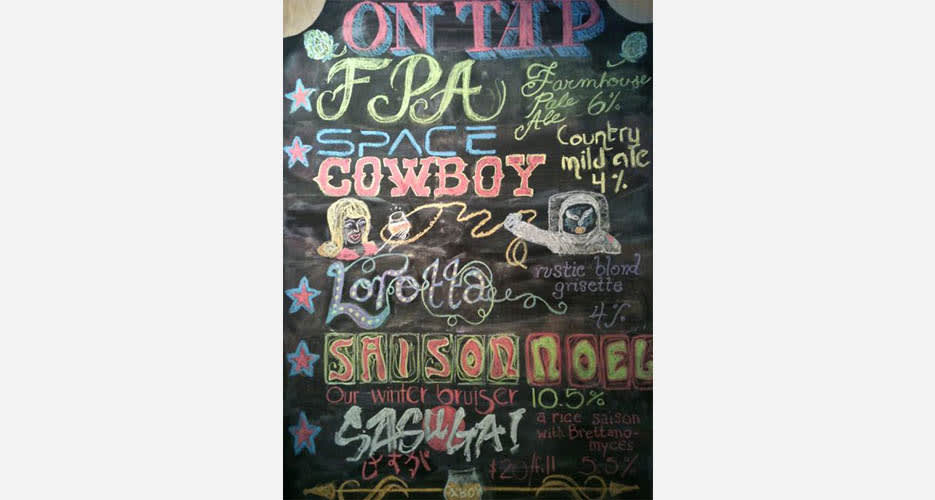 ON TAP
FPA
Farmhouse
Pale 6%
Ale
SPACE
COWBOY
Country
mild ale
4%
Loretta
rustic blond
grisette
4%
SAISON NOEL
Our winter bruiser 10.5%
SASUGA!
さすが
a rice saison
with Brettano-
myces
$20/fill 5.5%